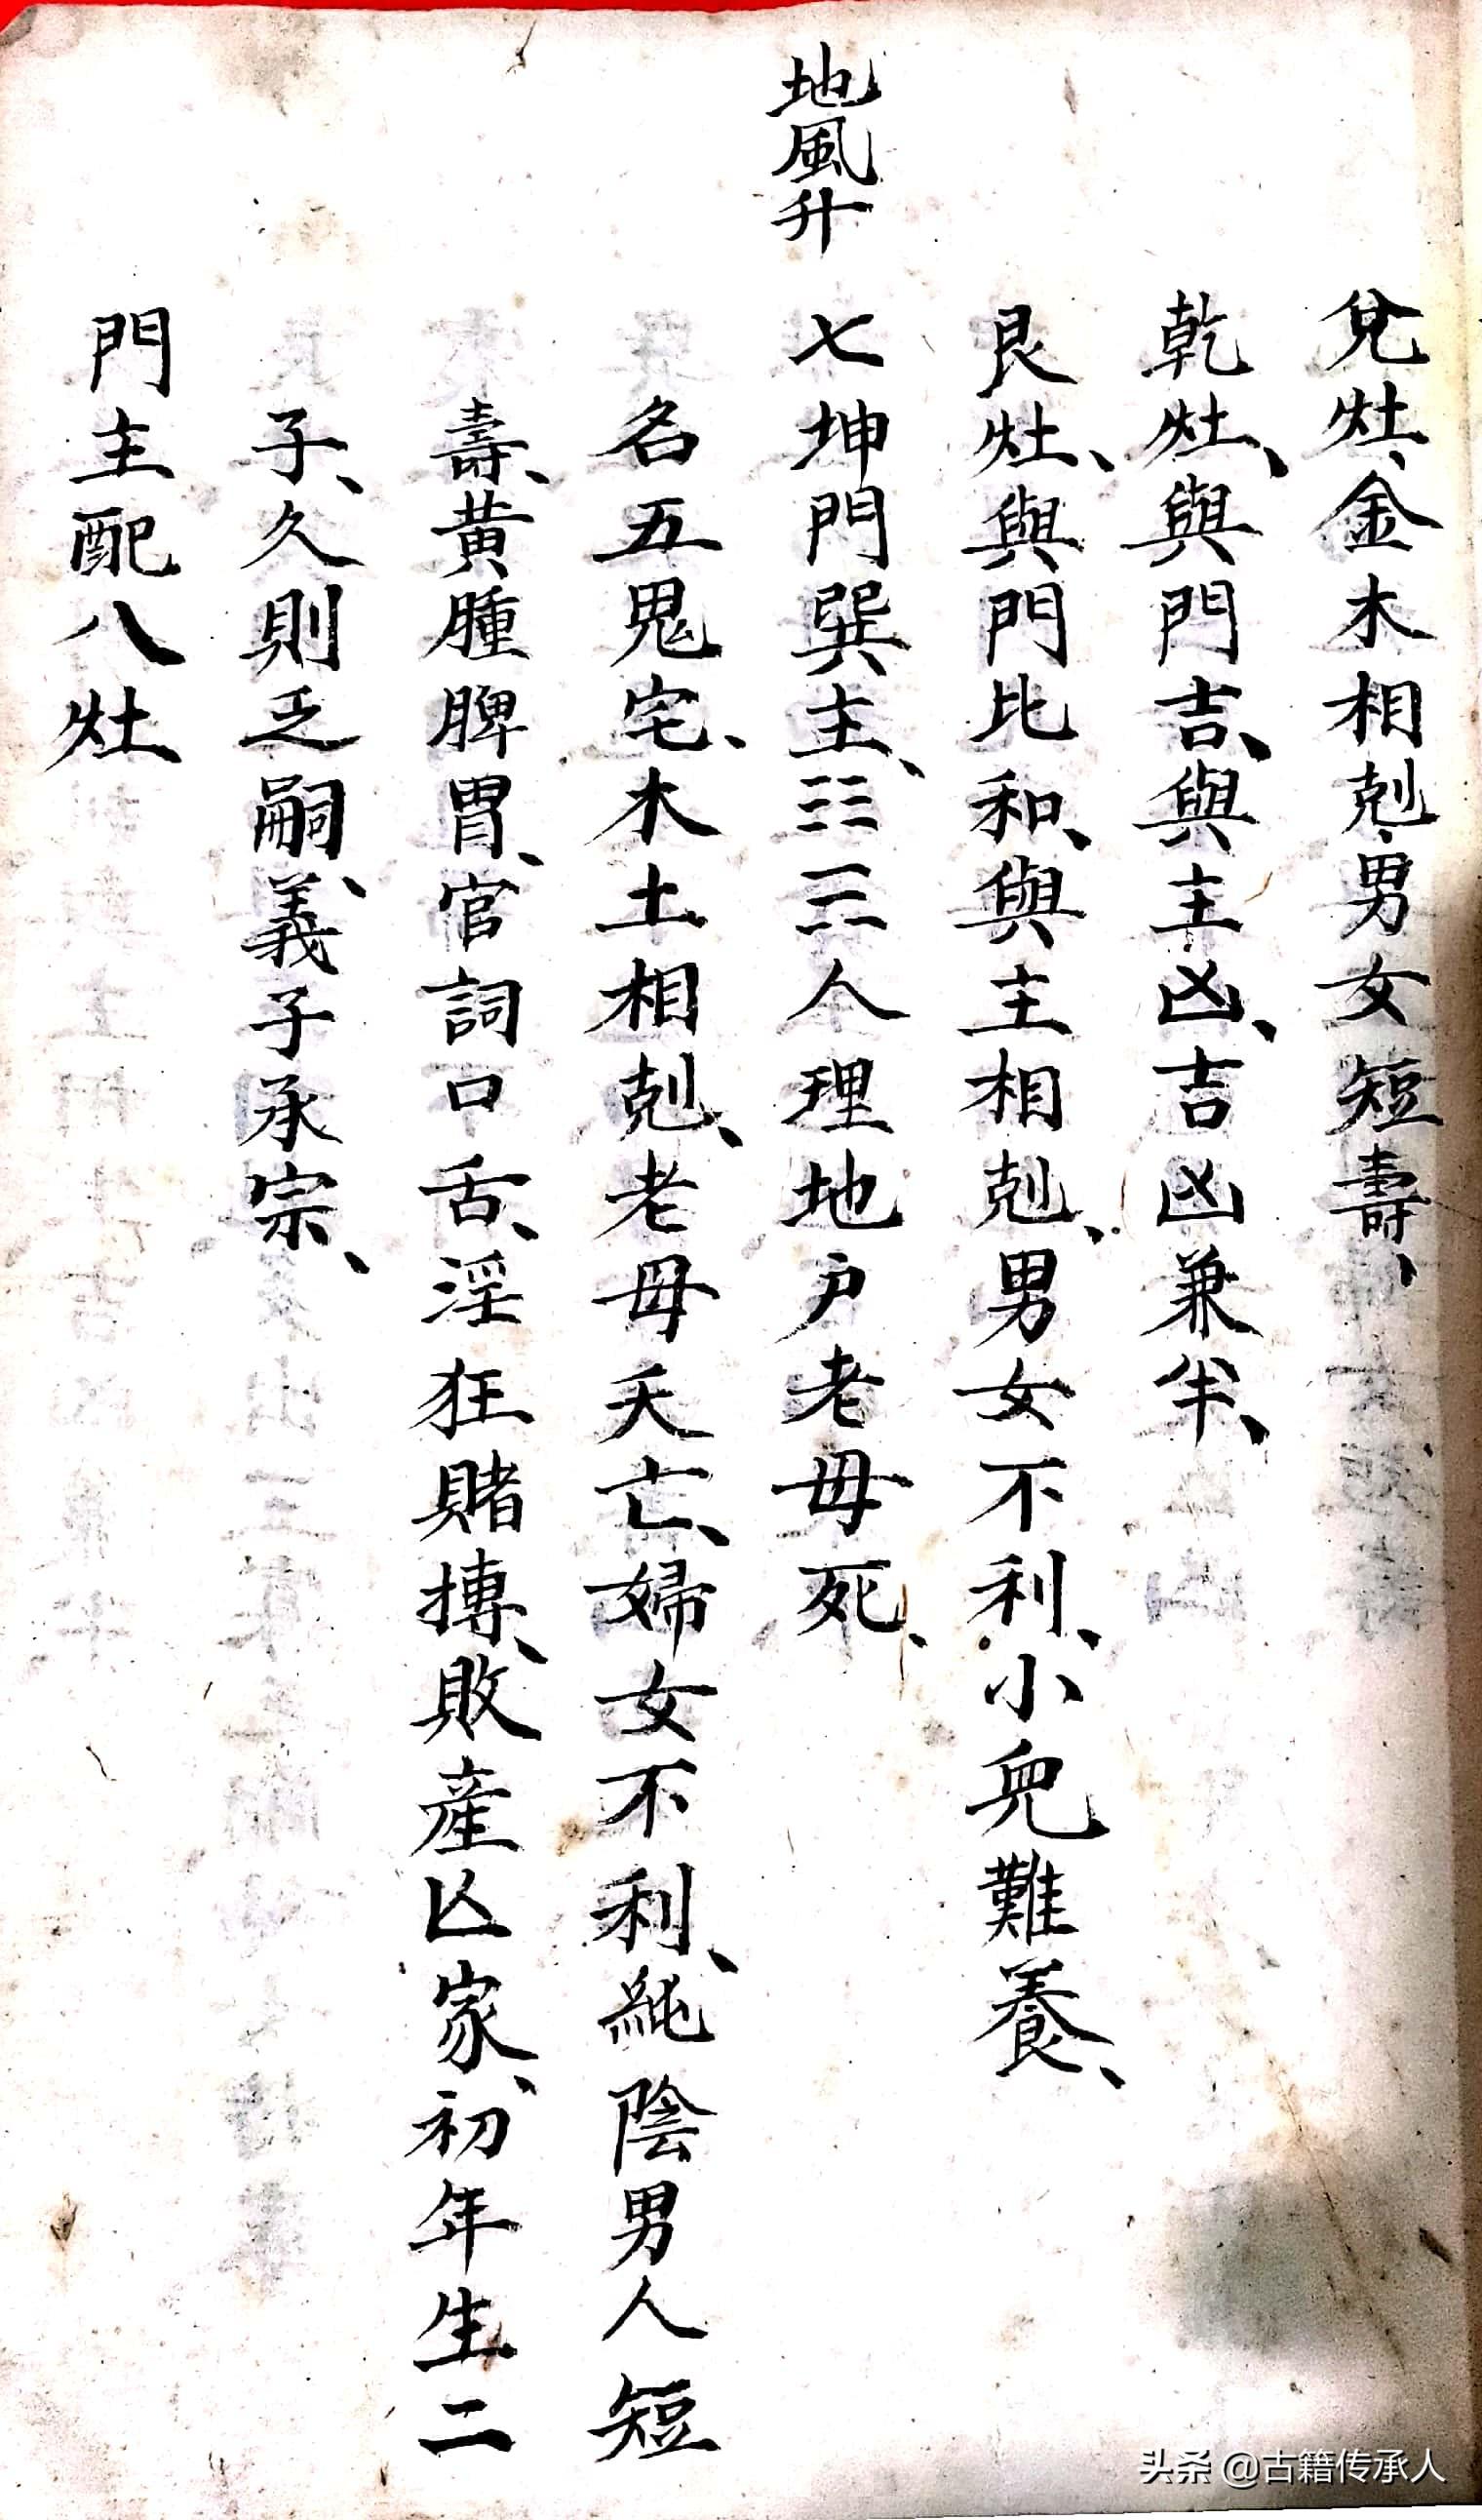 兌灶、金木相剋、男女短壽、
乾灶、與門吉、與主凶、吉凶兼半、
艮灶、與門比和、與主相剋、男女不利、小兒難養、
地風升
七坤門巽主、☷☴人理地户老母死、
名五鬼宅、木土相剋、老母夭亡、婦女不利、純陰男人短
壽、黃腫脾胃、官詞口舌、淫狂賭摶、敗產亾家、初年生二
子、久則乏嗣、義子承宗、
門主配八灶
头条@古籍传承人